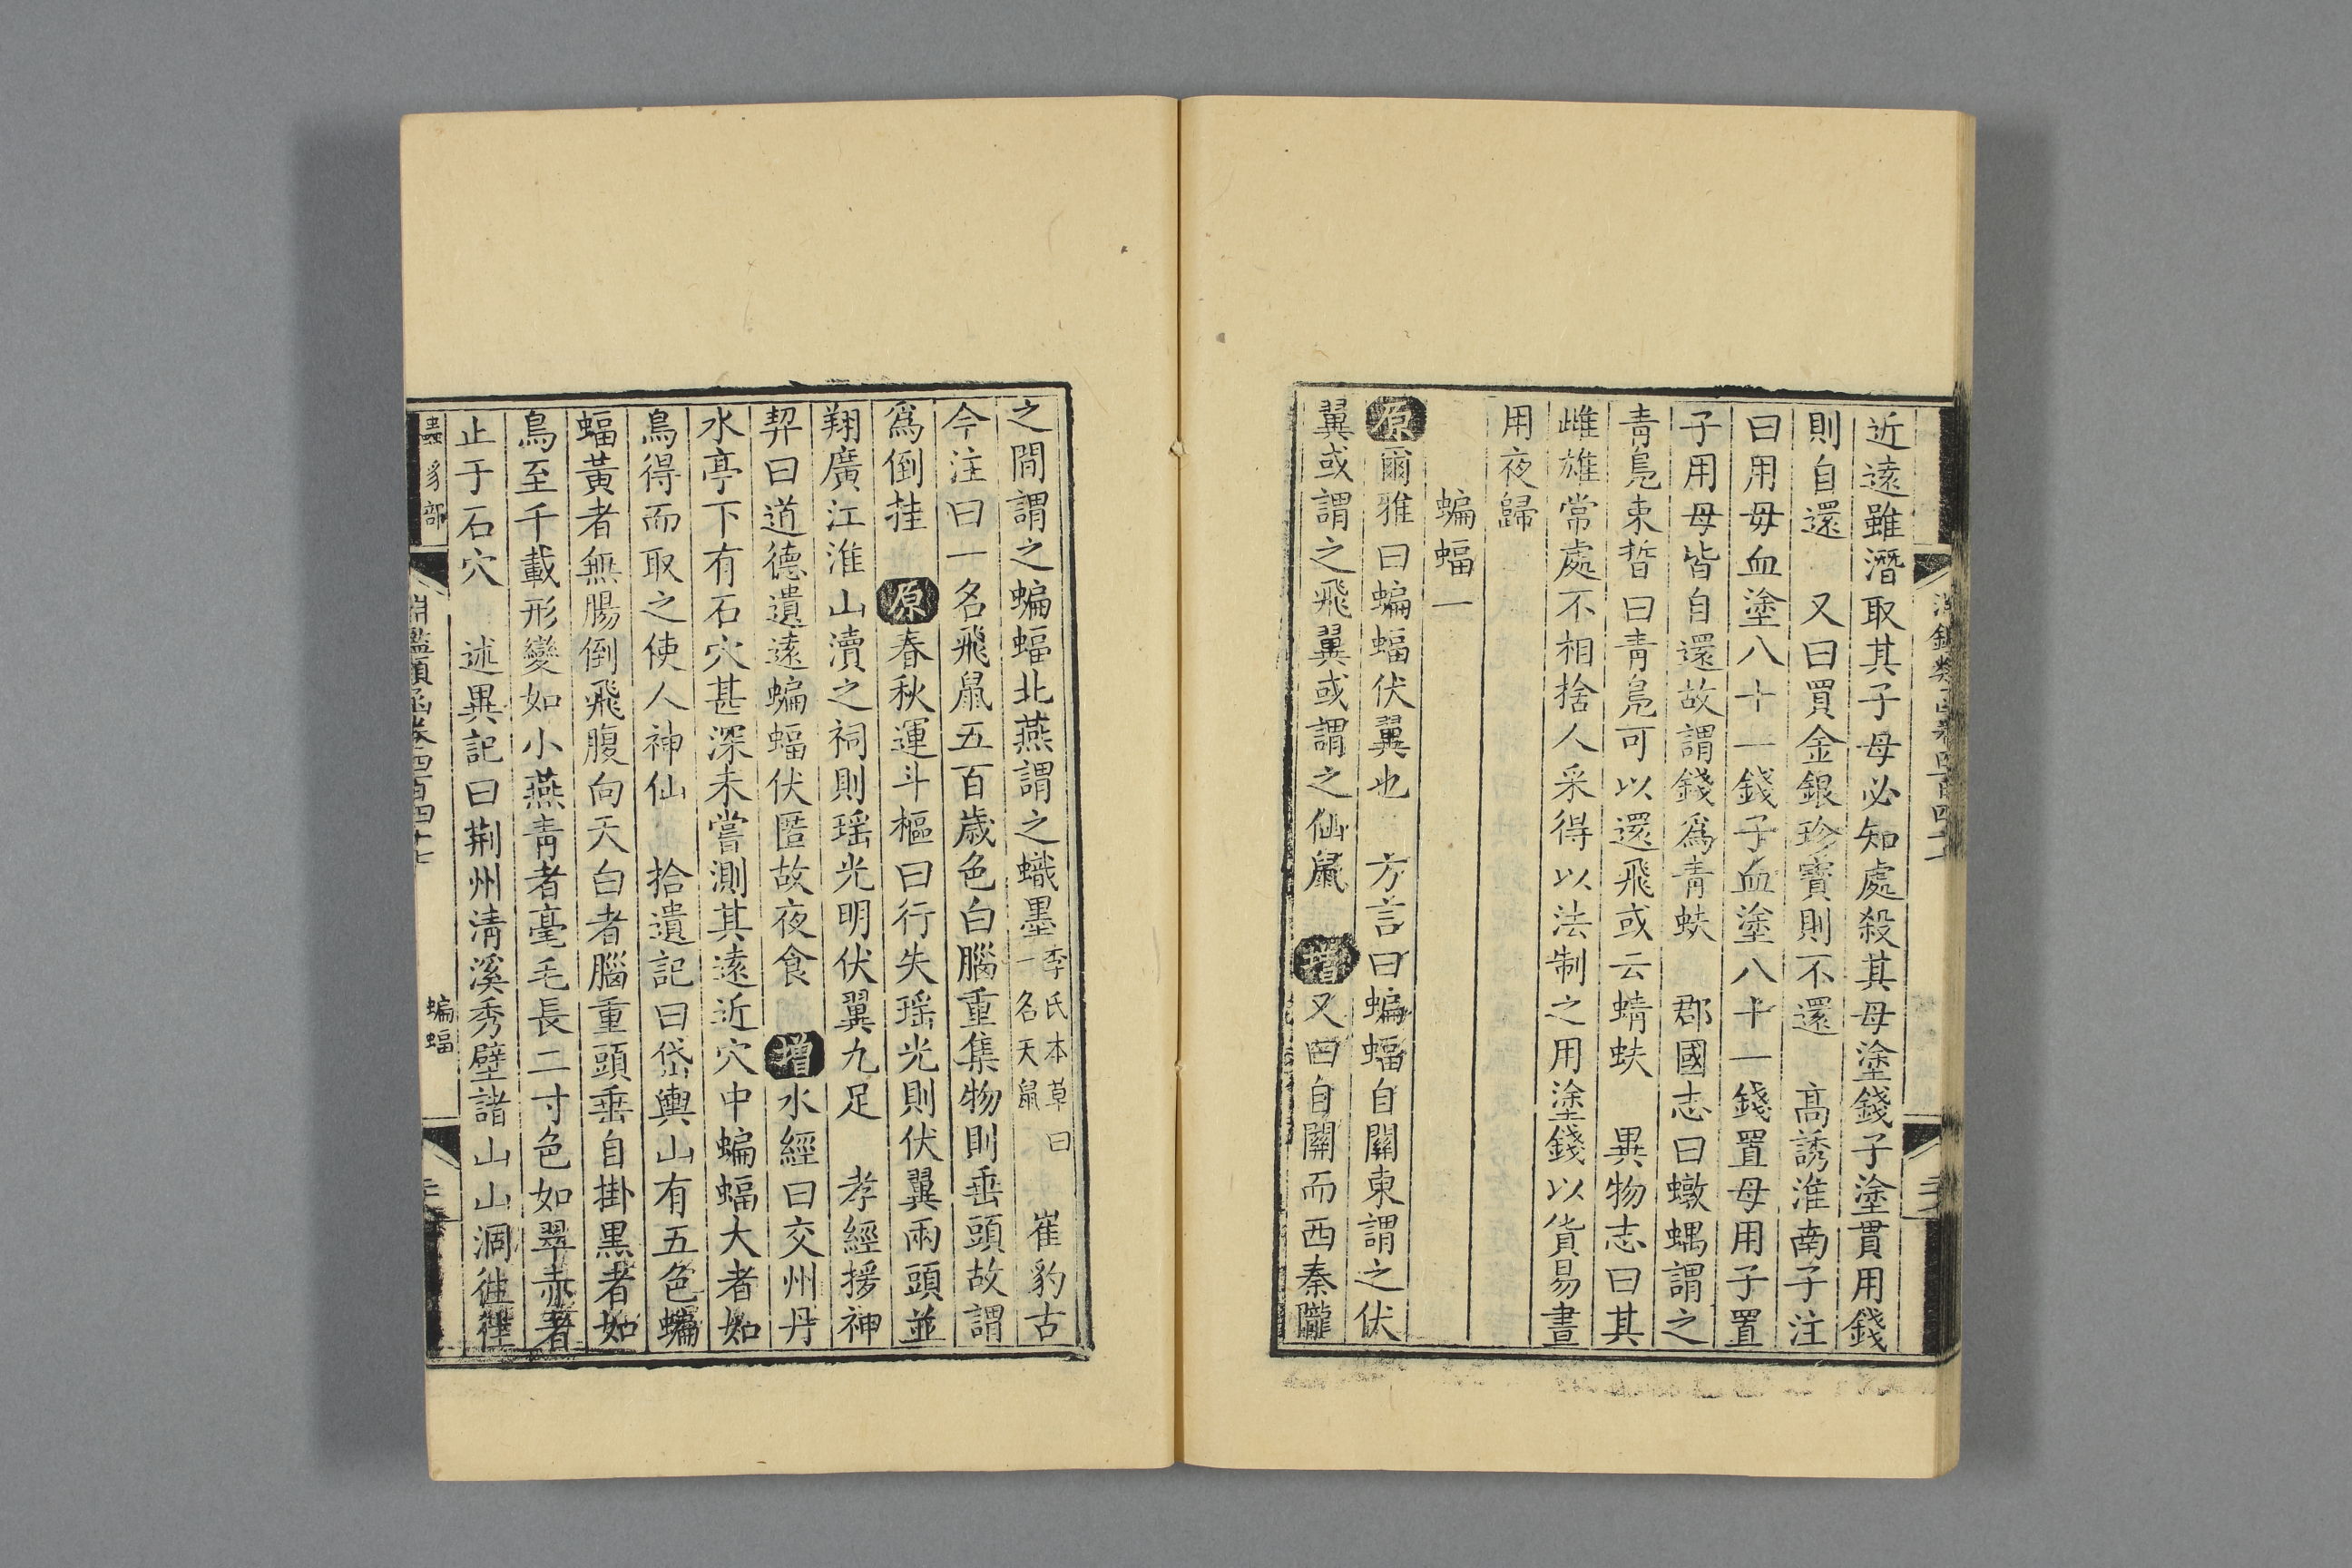 近遠雖潛取其子母必知處殺其母塗錢子塗貫用錢
則自還　又曰買金銀珍寶則不還　高誘淮南子注
曰用母血塗八十一錢子血塗八十一錢置母用子置
子用母皆自還故謂錢爲青蚨　郡國志曰蠍蝺謂之
青鳧束晢曰青鳧可以還飛或云蜻蚨　異物志曰其
雌雄常處不相捨人采得以法制之用塗錢以貨易晝
用夜歸
蝙蝠一
原爾雅曰蝙蝠伏翼也　方言曰蝙蝠自關東謂之伏
翼或謂之飛翼或謂之仙鼠　增又曰自關而西秦隴
之間謂之蝙蝠北燕謂之蟙䘃李氏本草曰一名天鼠　崔豹古
今注曰一名飛鼠五百歲色白腦重集物則垂頭故謂
爲倒挂　原春秋運斗樞曰行失瑤光則伏翼兩頭並
翔廣江淮山瀆之祠則瑤光明伏翼九足　孝經援神
契曰道德遺遠蝙蝠伏匿故夜食　增水經曰交州丹
水亭下有石穴甚深未嘗測其遠近穴中蝙蝠大者如
鳥得而取之使人神仙　拾遺記曰岱輿山有五色蝙
蝠黃者無腸倒飛腹向天白者腦重頭垂自掛黑者如
鳥至千載形變如小燕青者毫毛長二寸色如翠赤者
止于石穴　述異記曰荆州清溪秀壁諸山山洞往往
蟲豸部
淵鑑類函卷四百四十七
蝙蝠